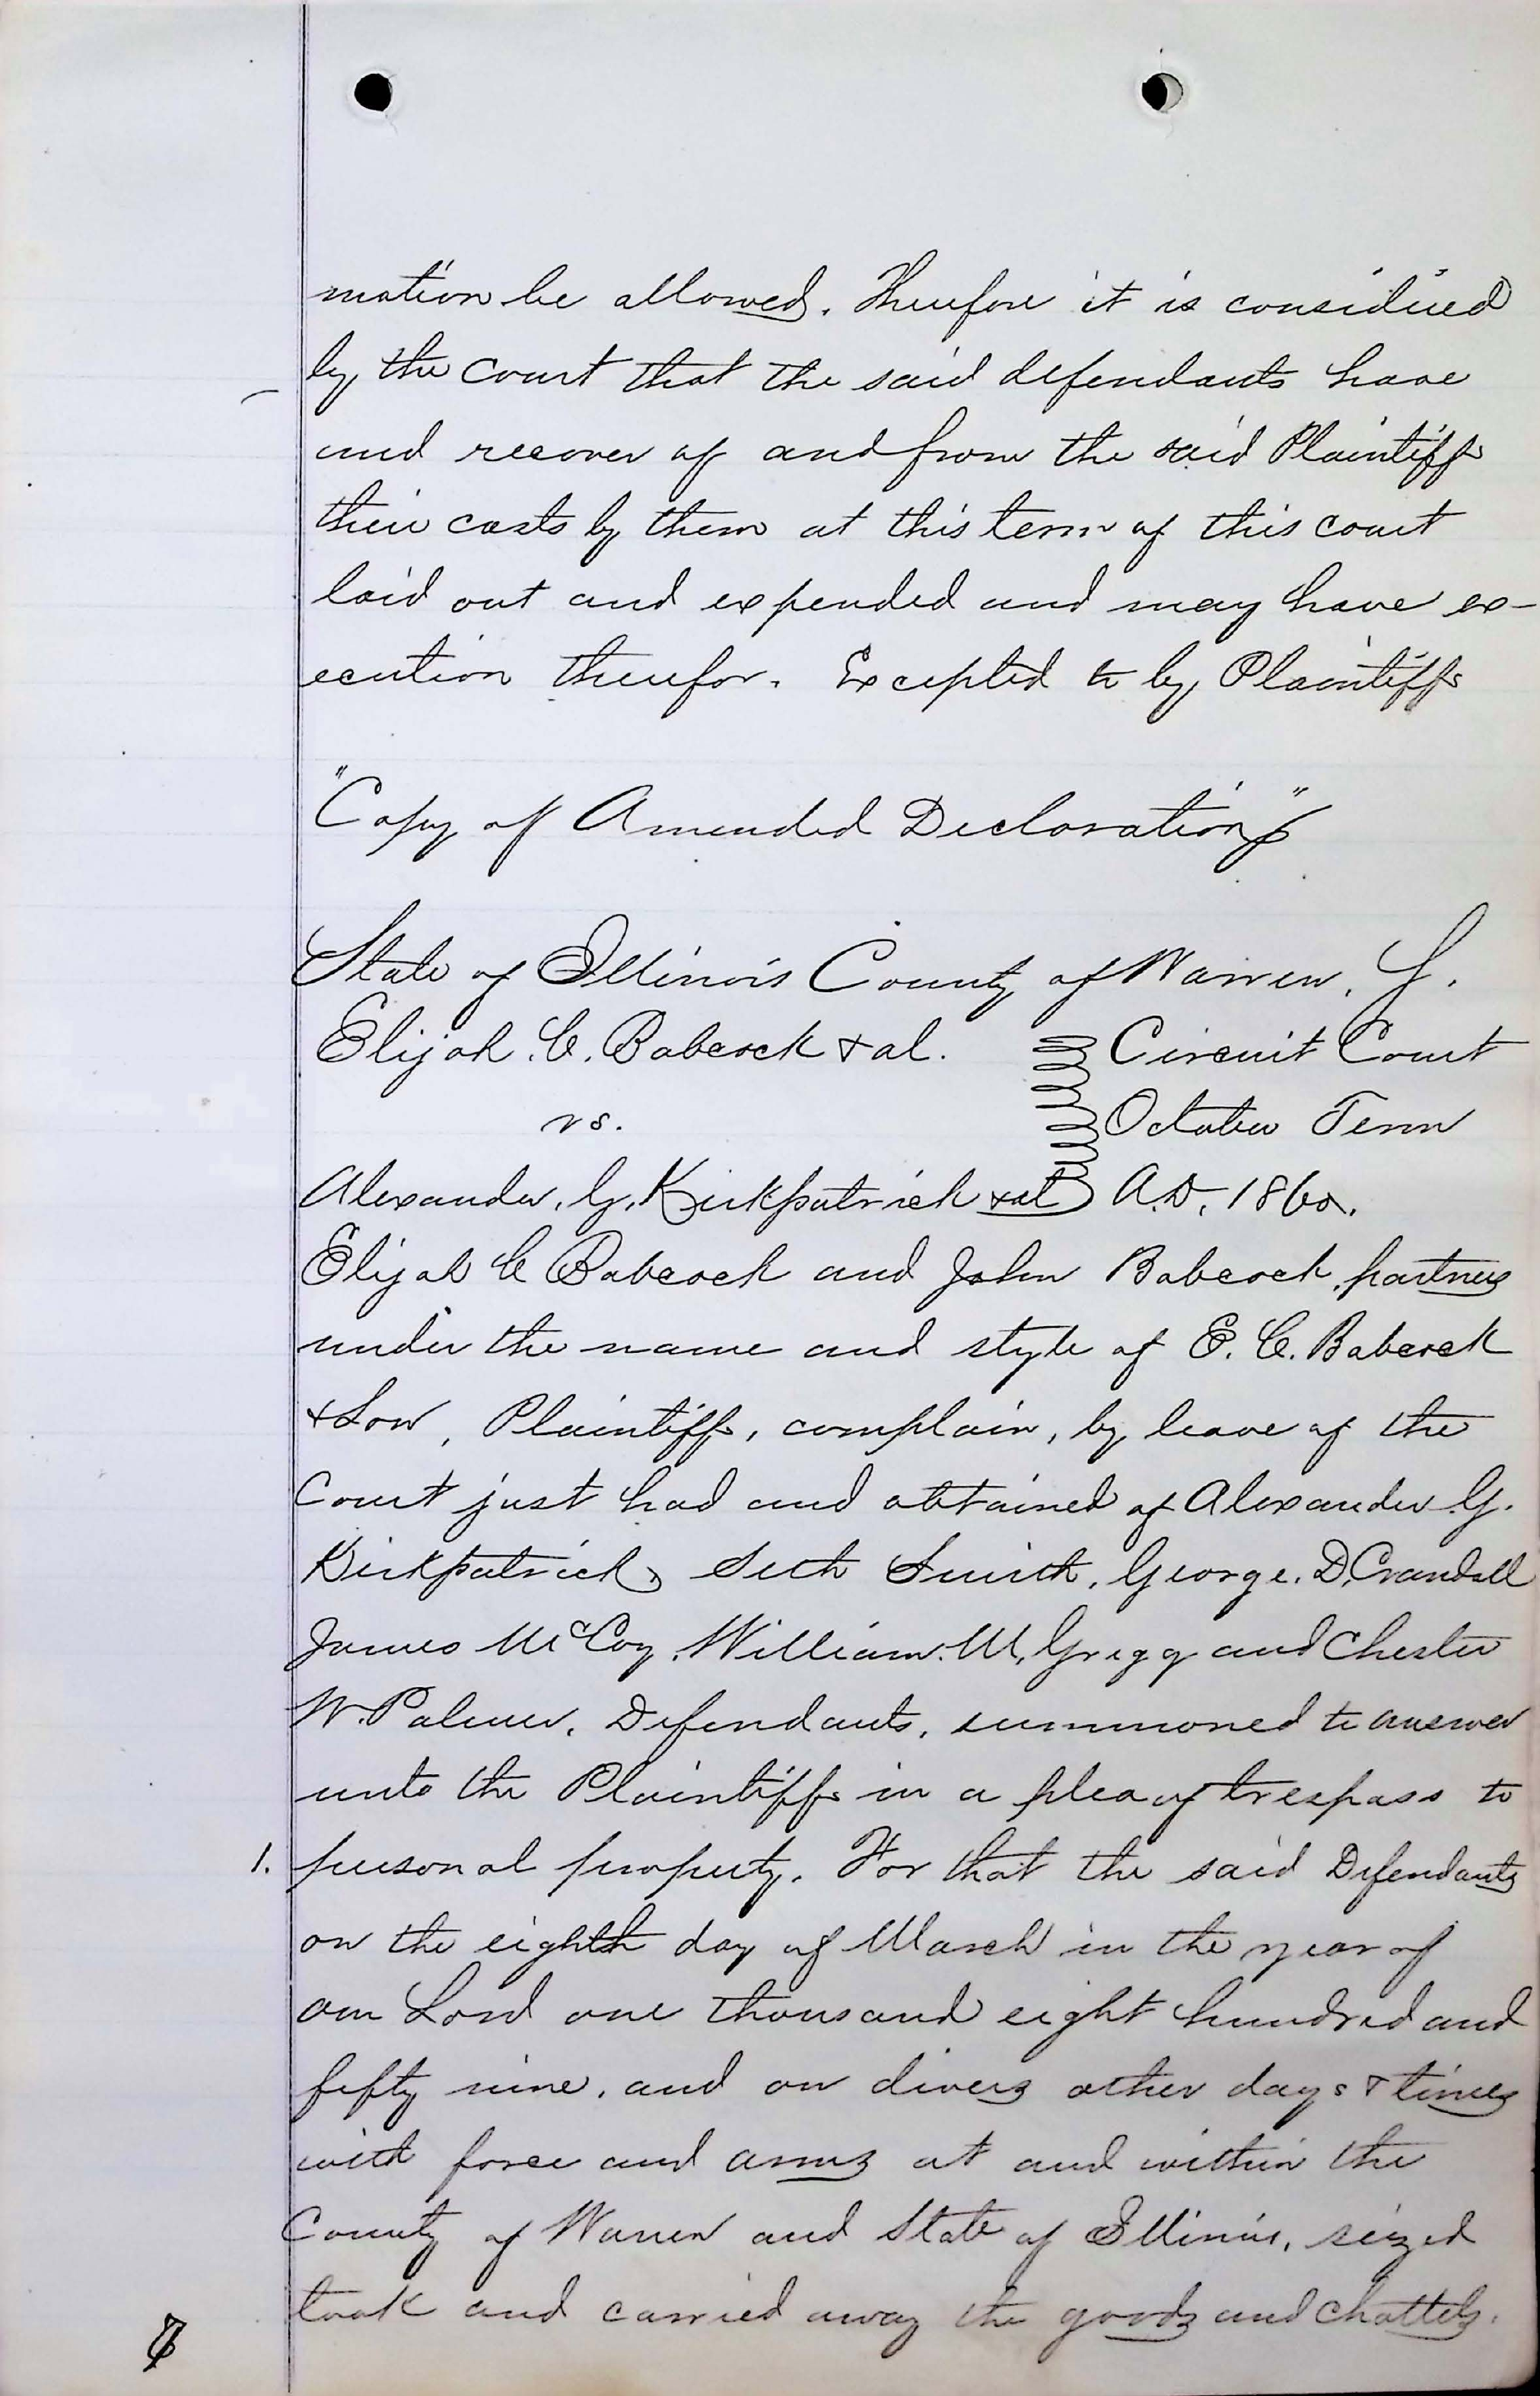 mation be allowed. Therefore it is considered
by the court that the said defendants have
and recover of and from the said Plaintiffs
their costs by them at this term of this court
laid out and expended and may have ex-
ecution therefor. Excepted to by Plaintiffs
"Copy of Amended Declaration"
State of Illinois County of Warren, S.
Elijah. C. Babcock & al. Circuit Court
vs. October Term
Alexander. G. Kirkpatrick & al A.D. 1860.
Elijah C Babcock and John Babcock, partners
under the name and style of E. C. Babcock
& Son, Plaintiffs, complain, by leave of the
Court just had and obtained of Alexander G.
Kirkpatrick, Seth Smith, George. D. Crandall
James McCoy, William. M. Gregg and Chester
W. Palmer, Defendants, summoned to answer
unto the Plaintiffs in a plea of trespass to
1. personal property. For that the said Defendants
on the eighth day of March in the year of
our Lord one thousand eight hundred and
fifty nine, and on divers other days & times
with force and arms at and within the
County of Warren and State of Illinois, seized
took and carried away the goods and chattels.